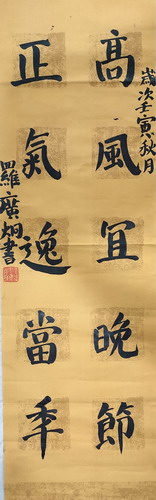 歲次壬寅秋月
高風宜晚節
正氣逸當年
羅廣炯書